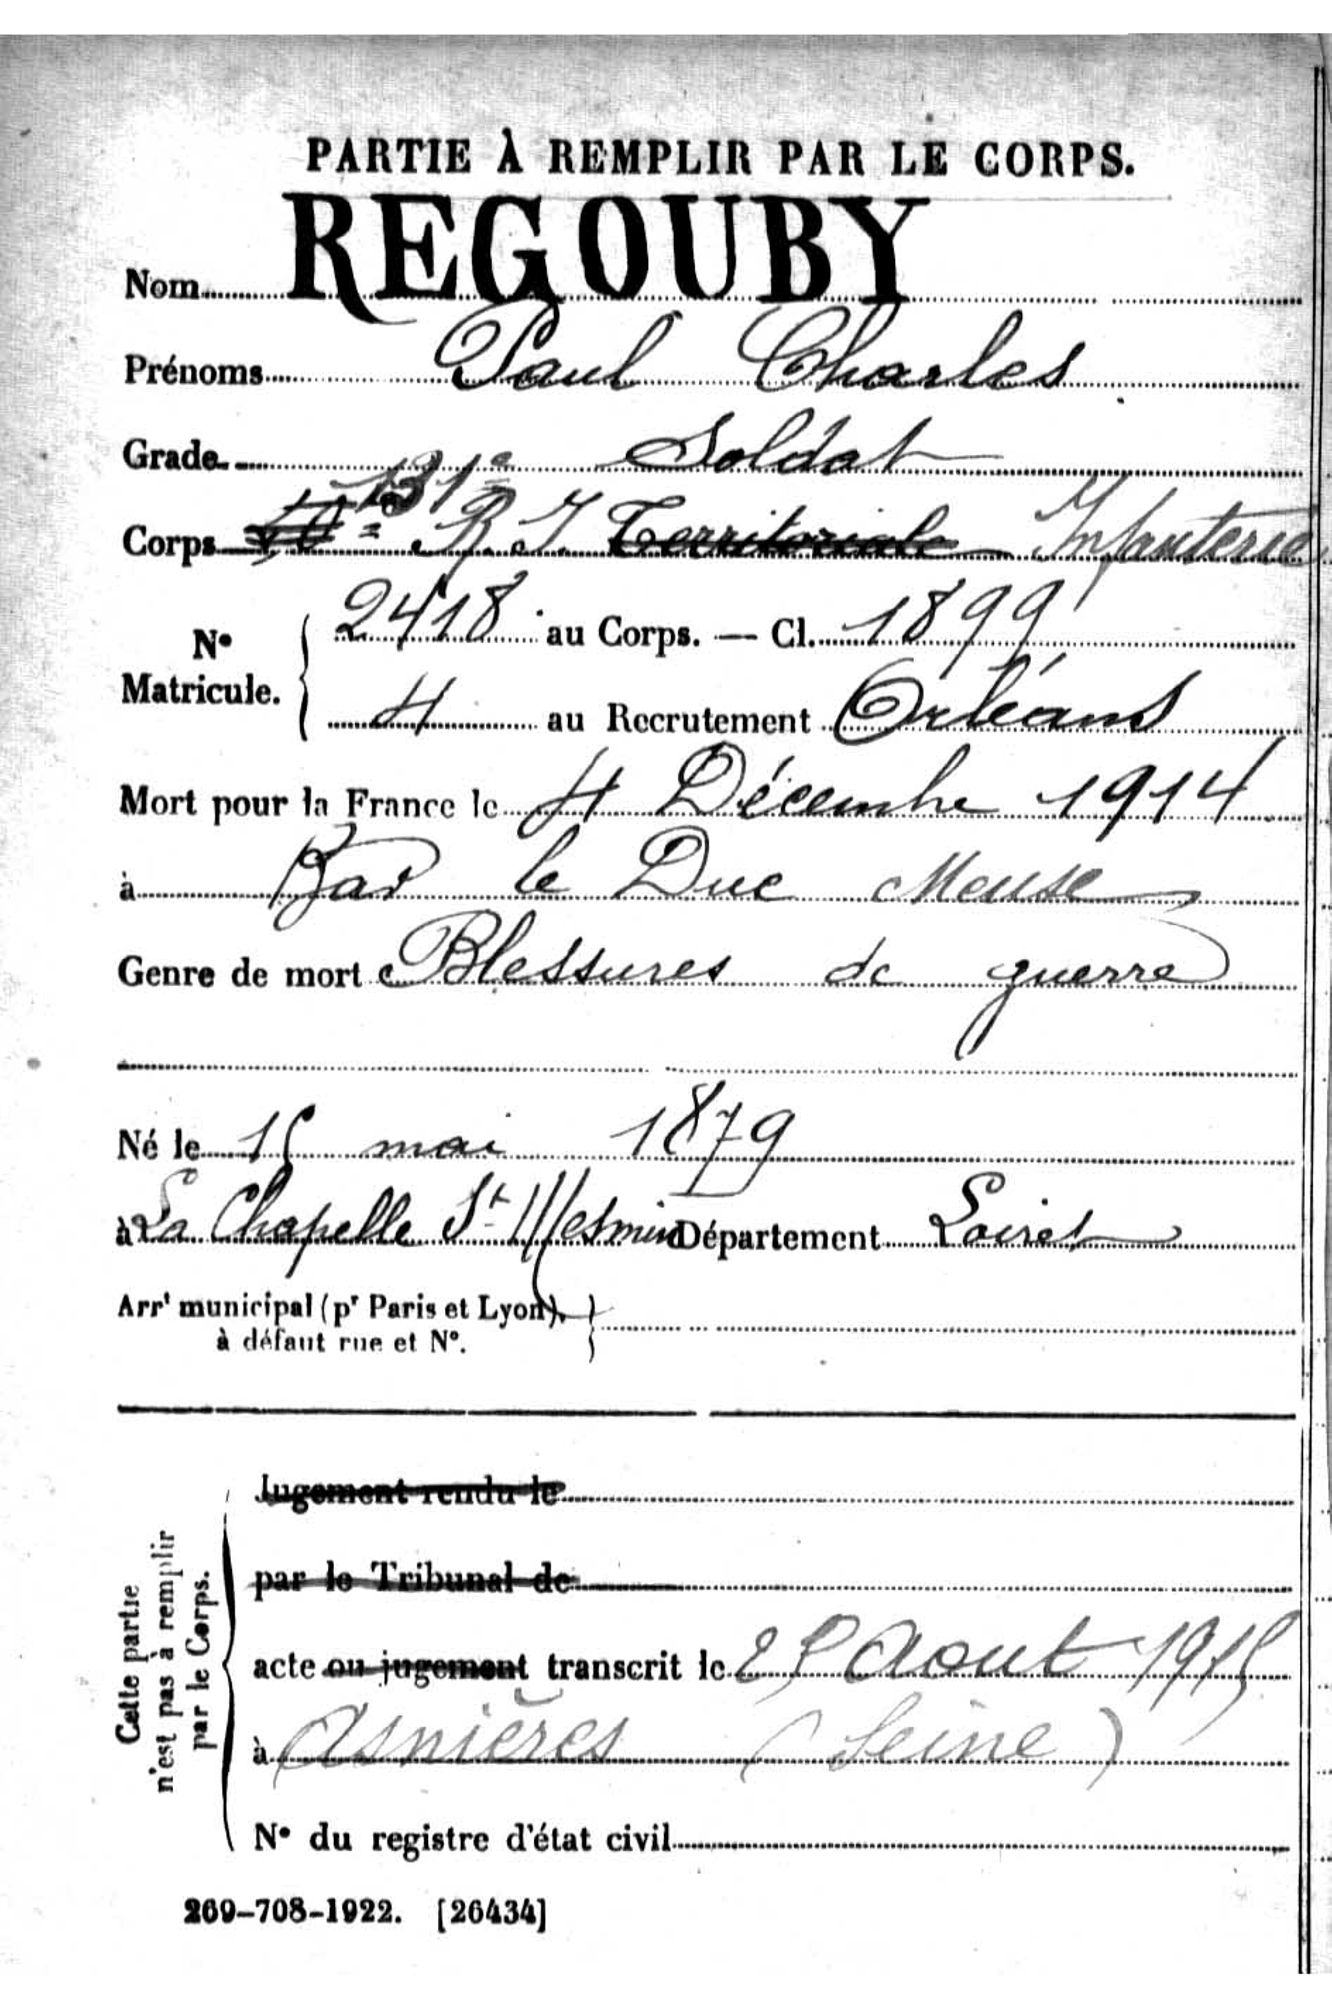 PARTIE À REMPLIR PAR LE CORPS.
Nom REGOUBY
Prénoms Paul Charles
Grade Soldat
131e
Corps R. I. Territoriale Infanterie
No Matricule. 2418 au Corps. — Cl. 1899
4 au Recrutement Orléans
Mort pour la France le 4 Décembre 1914
à Bar le Duc Meuse
Genre de mort Blessures de guerre
Né le 15 mai 1879
à La Chapelle St Mesmin Département Loiret
Arrt municipal (pr Paris et Lyon),
à défaut rue et No.
Cette partie
n'est pas à remplir
par le Corps.
Jugement rendu le
par le Tribunal de
acte ou jugement transcrit le 25 Aout 1915
à Asnières (Seine)
No du registre d'état civil
269-708-1922. [26434]